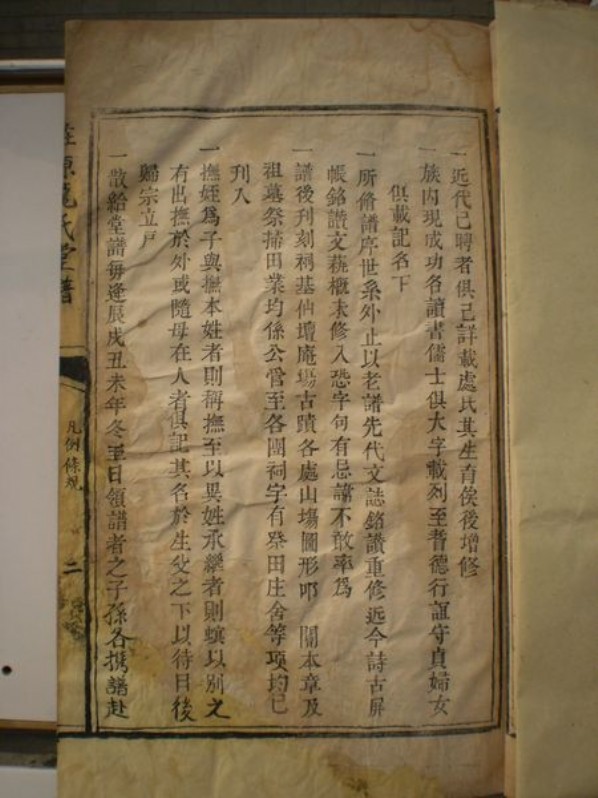 一近代已聘者俱已詳載處氏其生育俟後增修
一族內現成功名讀書儒士俱大字載列至耆德行誼守貞婦女
俱載記名下
一所脩譜序世系外止以老譜先代文誌銘讃重修近今詩古屏
帳銘讃文蓺概未修入恐字句有忌諱不敢率爲
一譜後刊刻祠基仙壇庵塲古蹟各處山塲圖形 關本章及
祖墓祭掃田業均係公營至各團祠字有祭田庄舍等项均已
刋入
一撫姪爲子與撫本姓者則稱撫至以異姓承繼者則螟以别之
有出撫於外或隨母在人者俱記其名於生父之下以待日後
歸宗立戶
一散給堂譜每逢辰戌丑未年冬至日領譜者之子孫各携譜赴
氏堂譜
凡例條規
二